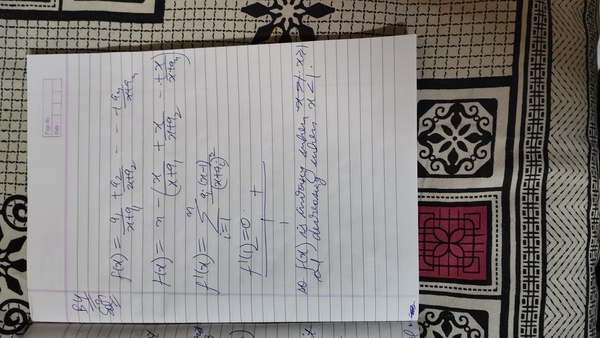 Page No.
Date
B4
Sol
f(x) = a₁/(x+a₁) + a₂/(x+a₂) - - - + aₙ/(x+aₙ)
f(x) = n - (x/(x+a₁) + x/(x+a₂) - - + x/(x+aₙ))
f'(x) = ∑_{i=1}^{n} aᵢ(x-1)/(x+aᵢ)²
f'(1)=0
+
1
so f(x) is when x ≥ 1
decreasing when x < 1.